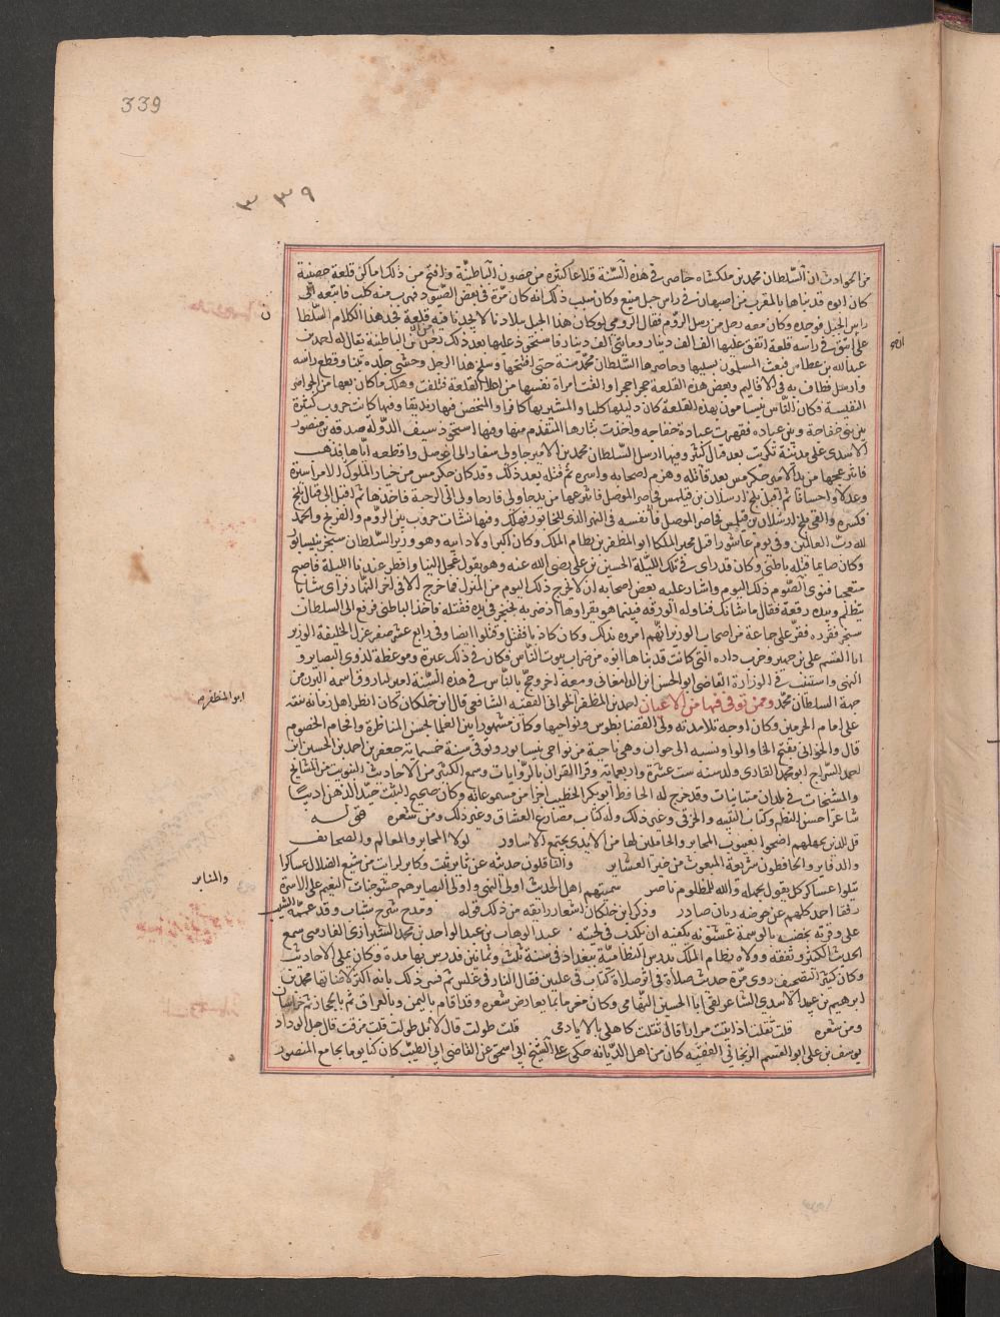 339
٣٣٩
من الحوادث ان السلطان محمد بن ملكشاه حاصر في هذه السنة قلاعا كثيرة من حصون الباطنية وافتتح من ذلك اماكن قلعة حصينة
كان ابوه قد بناها بالقرب من اصبهان في راس جبل منيع وكان سبب ذلك انه كان مرة في بعض الصيود فهرب منه كلب فاتبعه الى
راس الجبل فوجده وكان معه رجل من رسل الروم فقال الرومي لو كان هذا الجبل ببلادنا لاتخذنا فيه قلعة فحدا هذا الكلام السلطان
على ان بنى في راسه قلعة انفق عليها الف الف دينار ومايتي الف دينار فاستحوذ عليها بعد ذلك رجل من الباطنية يقال له احمد بن
عبدالله بن عطاش فتعب المسلمون بسببها وحاصرها السلطان محمد سنة حتى افتتحها وسلخ هذا الرجل وحشى جلده تبنا وقطع راسه
وارسل فطاف به في الاقاليم ونقض هذه القلعة حجرا حجرا والقت امراة نفسها من اعلا القلعة فتلفت وهلك ما كان معها من الجواهر
النفيسة وكان الناس يتشامون بهذه القلعة كان دليلها كلبا والمشير بها كافرا والمتحصن فيها زنديقا وفيها كانت حروب كثيرة
بين بني خفاجة وبني عباده فقهرت عبادة خفاجه واخذت بثارها المتقدم منها وفيها استحوذ سيف الدولة صدقه بن منصور
الاسدي على مدينة تكريت بعد قتال كثير وفيها ارسل السلطان محمد بن الامير جاولي سقاو الى الموصل واقطعه اياها فذهب
فانتزعها من يد الامير جكرمس بعد قاتله وهزم اصحابه واسره ثم قتله بعد ذلك وقد كان جكرمس من خيار الملوك الامرا سيرة
وعدلا واحسانا ثم اقبل قلج ارسلان بن قتلمش فحاصر الموصل فانتزعها من يد جاولي فصار جاولي الى الرحبة فاخذها ثم اقبل الى قتال قلج
فكسره والقى قلج ارسلان نفسه في النهر الذي للخابور فهلك وفيها نشات حروب بين الروم والفرنج والحمد
لله رب العالمين وفي يوم عاشورا قتل فخر الملك ابو المظفر بن نظام الملك وكان اكبر اولاد ابيه وهو وزير السلطان سنجر بنيسابور
وكان صايما قتله باطني وكان قد راى في تلك الليلة الحسين بن علي رضي الله عنه وهو يقول عجل الينا وافطر عندنا الليلة فاصبح
متعجبا فنوى الصوم ذلك اليوم واشار عليه بعض اصحابه ان لا يخرج ذلك اليوم من المنزل فما خرج الا في اخر النهار فراى شابا
يتظلم وبيده رقعة فقال ما شانك فناوله الورقه فبينما هو يقراوها اذ ضربه بخنجر في يده فقتله فاخذ الباطني فرفع الى السلطان
سنجر فقرره فقر على جماعة من اصحاب الوزير انهم امروه بذلك وكان كاذبا فقتل وقتلوا ايضا وفي رابع عشر صفر عزل الخليفة الوزير
ابا القسم علي بن جهير وخرب داره التي كانت قد بناها ابوه من خراب بيوت الناس فكان في ذلك عبرة وموعظة لذوي البصاير و
النهى واستنيب في الوزارة القاضي ابو الحسن ابن الدامغاني ومعه اخر وحج بالناس في هذه السنة امير
جهة السلطان محمد وممن توفي فيها من الاعيان احمد بن المظفر الخوافي الفقيه الشافعي قال ابن خلكان كان انظر اهل زمانه تفقه
على امام الحرمين وكان اوجه تلامذته ولي القضا بطوس ونواحيها وكان مشهورا بين العلما بحسن المناظرة وافحام الخصوم
قال والخوافي بفتح الخا والواو نسبه الى خواف وهي ناحية من نواحي نيسابور وتوفي سنة خسمايه جعفر بن احمد بن الحسين ابن
احمد السراج ابو محمد القاري ولد سنه ست عشرة واربعمايه وقرا القران بالروايات وسمع الكثير من الاحاديث النبويه من المشايخ
والمشيخات في بلدان متباينات وقد خرج له الحافظ ابو بكر الخطيب اجزا من مسموعاته وكان صحيح الثبت جيد الذهن اديبا
شاعرا حسن النظم وكتاب التنبيه والخرقي وغير ذلك وله كتاب مصارع العشاق وغير ذلك ومن شعره قوله
قل للذين بجهلهم اضحوا يعيبون المحابر والحاملين لها من الايدي بمجتمع الاساور لولا المحابر والمعالم والصحايف
والدفاتر والحافظون شريعة المبعوث من خير العشاير والناقلون حديثه عن ثابر ثبت وكابر لرايت من شيع الضلال عساكرا
تتلوا عساكر كل يقول بجهله والله للمظلوم ناصر سميتهم اهل الحديث اولي النهى واولي البصاير هم حشو جنات النعيم على الاسرة
رفقا احمد كلهم عن حوضه ريان صادر وذكر ابن خلكان اشعار رايقه من ذلك قوله ومدع شرخ شباب وقد عممه الشيب
على وفرته يخضب بالوسمة عشنونه يكفيه ان يكذب في لحيته عبد الوهاب بن عبد الواحد بن محمد الشيرازي الفارسي سمع
الحديث الكثير وتفقه وولاه نظام الملك تدريس النظامية ببغداد في سنة ثلث وثمانين فدرس بها مدة وكان يملي الاحاديث
وكان كثير التصحيف روى مرة حديث صلاة في اثر صلاة كتاب في عليين فقال النار في غلس ثم فسر ذلك بانه اكثر لاضاتها محمد بن
ابرهيم بن عبيد الاسدي الشاعر لقي ابا الحسين التهامي وكان مغرما بما يعارض شعره وقد اقام باليمن وبالعراق ثم بالحجاز ثم خراسان
ومن شعره قلت ثقلت اذ اتيت مرارا قال ثقلت كاهلي بالايادي قلت طولت قال لا بل طولت قلت مزقت قال حبل الوداد
يوسف بن علي ابو القسم الزنجاني الفقيه كان من اهل الديانه حكى عن الشيخ ابي اسحق عن القاضي ابي الطيب كان كنا يوما بجامع المنصور
ابو المظفر
والمنابر